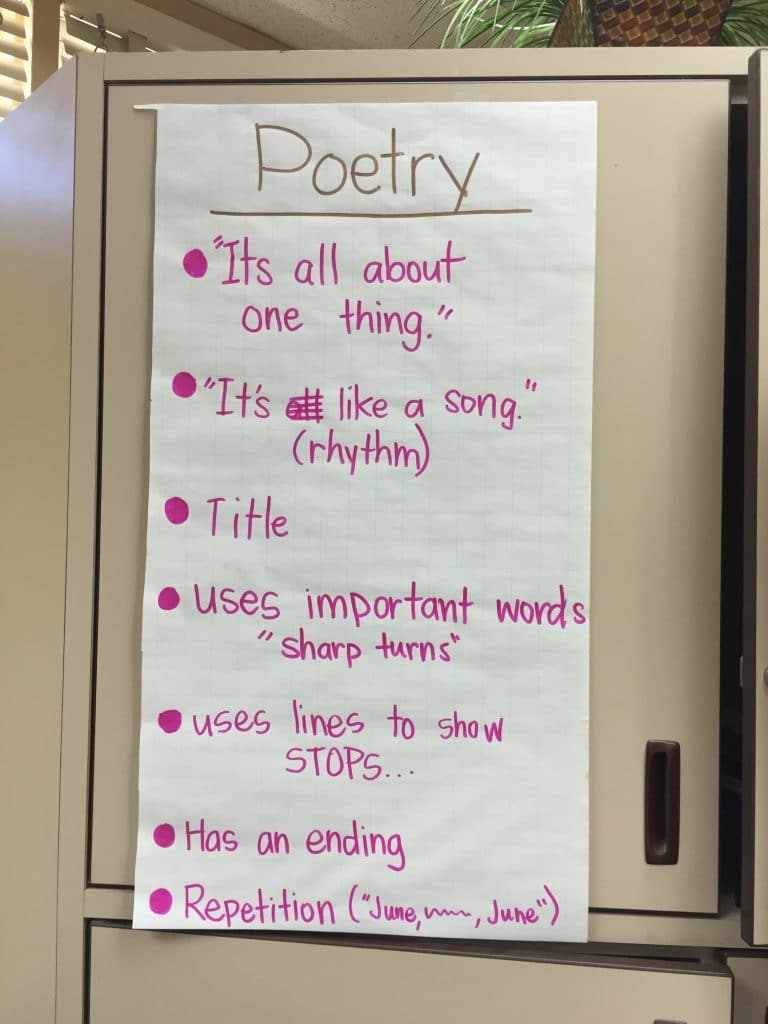 Poetry
"Its all about
one thing."
"It's like a song."
(rhythm)
Title
uses important words
"sharp turns"
uses lines to show
STOPS...
Has an ending
Repetition ("June, , June")